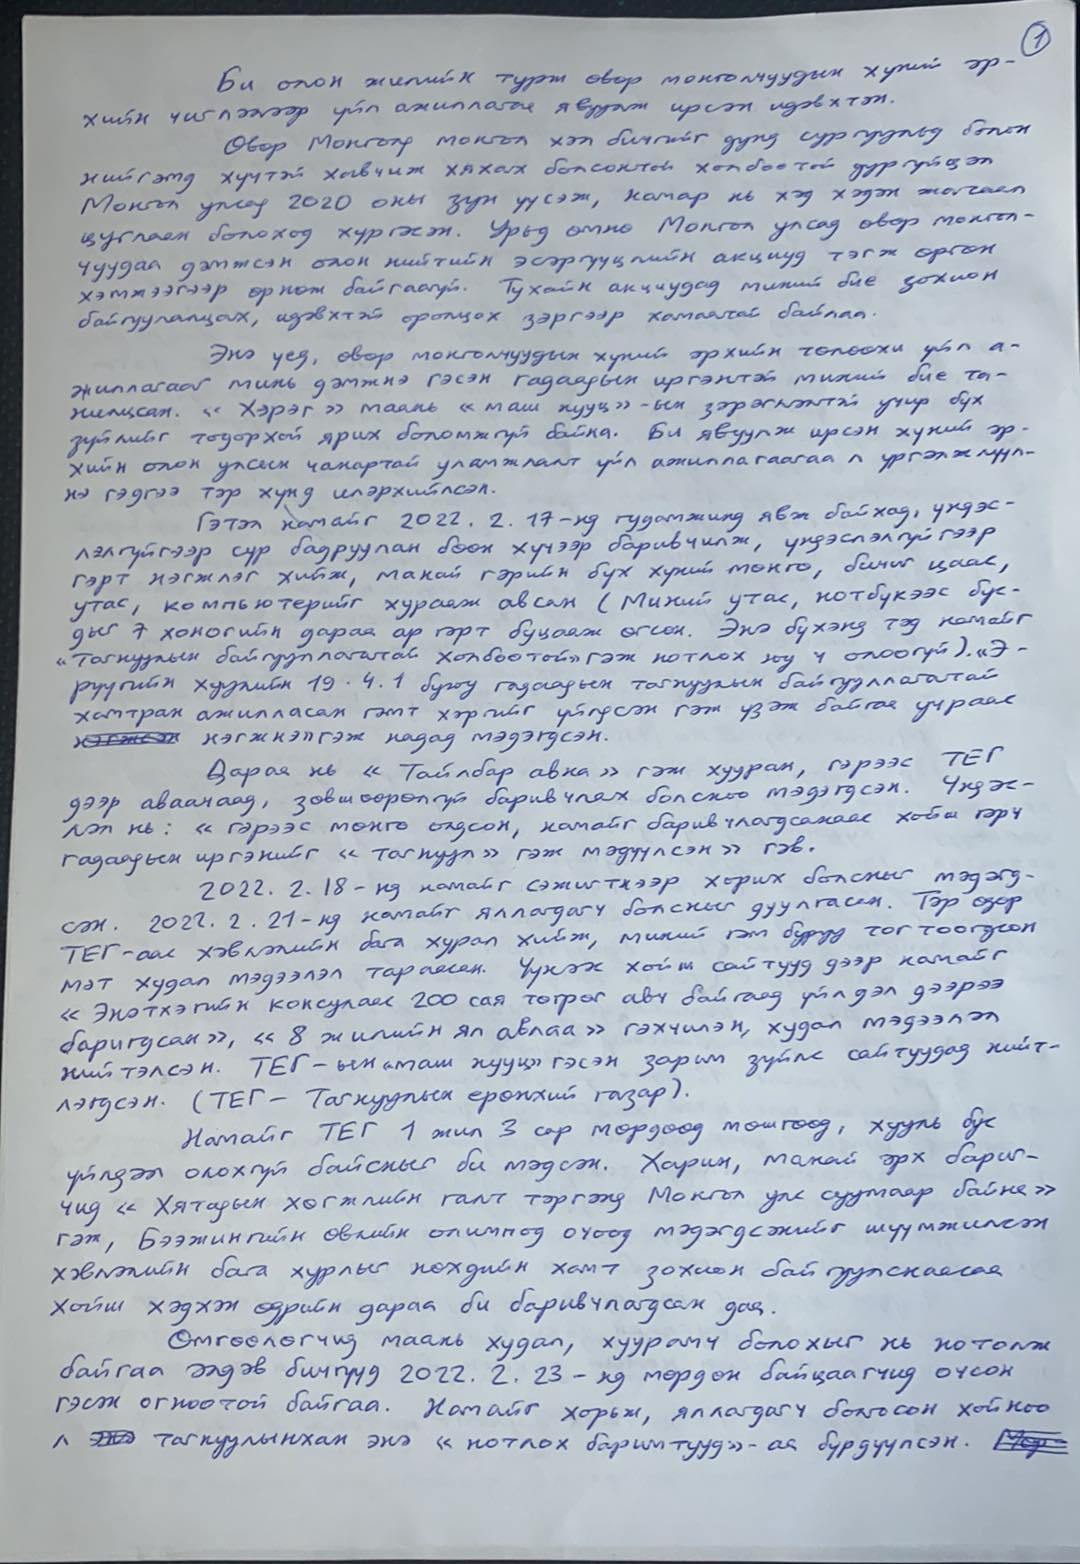 1
Би олон жилийн турж өвөр монголчуудын хүний эр-
хийн чиглэлээр үйл ажиллагаа явуулж ирсэн идэвхтэн.
Өвөр Монголд монгол хэл бичгийг дунд сургуульд болон
нийгэмд хүчтэй хавчиж хяхах болсонтой холбоотой дургүйцэл
Монгол улсад 2020 оны зун үүсэж, намар нь хэд хэдэн жагсаал
цуглаан болоход хүргэсэн. Урьд өмнө Монгол улсад өвөр монгол-
чуудаа дэмжсэн олон нийтийн эсэргүүцлийн акциуд тэгж өргөн
хэмжээгээр өрнөж байгаагүй. Тухайн акциудад миний бие зохион
байгуулалцах, идэвхтэй оролцох зэргээр хамаатай байлаа.
Энэ үед, өвөр монголчуудын хүний эрхийн төлөөхи үйл а-
жиллагааг минь дэмжнэ гэсэн гадаадын иргэнтэй миний бие та-
нилцсан. « Хэрэг » маань « маш нууц »-ын зэрэглэлтэй учир бүх
зүйлийг тодорхой ярих боломжгүй байна. Би явуулж ирсэн хүний эр-
хийн олон улсын чанартай уламжлалт үйл ажиллагаагаа л үргэлжлүүл-
нэ гэдгээ тэр хүнд илэрхийлсэн.
Гэтэл намайг 2022. 2. 17-нд гудамжинд явж байхад, үндэс-
лэлгүйгээр сүр бадруулан бөөн хүчээр баривчилж, үндэслэлгүйгээр
гэрт нэгжлэг хийж, манай гэрийн бүх хүний мөнгө, бичиг цаас,
утас, компьютерийг хурааж авсан ( Миний утас, нотбүкээс бус-
дыг 7 хоногийн дараа ар гэрт буцааж өгсөн. Энэ бүхэнд тэд намайг
«тагнуулын байгууллагатай холбоотой» гэж нотлох юу ч олоогүй). «Э-
рүүгийн хуулийн 19. 4. 1 буюу гадаадын тагнуулын байгууллагатай
хамтран ажилласан гэмт хэргийг үйлдсэн гэж үзэж байгаа учраас
нэгжнэ» гэж надад мэдэгдсэн.
Дараа нь « Тайлбар авна » гэж хууран, гэрээс ТЕГ
дээр аваачаад, зөвшөөрөлгүй баривчлах болсноо мэдэгдсэн. Үндэс-
лэл нь: « гэрээс мөнгө олдсон, намайг баривчлагдсанаас хойш гэрч
гадаадын иргэнийг « тагнуул » гэж мэдүүлсэн » гэв.
2022. 2. 18-нд намайг сэжигтнээр хорих болсныг мэдэгд-
сэн. 2022. 2. 21-нд намайг яллагдагч болсныг дуулгасан. Тэр өдөр
ТЕГ-аас хэвлэлийн бага хурал хийж, миний гэм буруу тогтоогдсон
мэт худал мэдээлэл тараасан. Үүнээс хойш сайтууд дээр намайг
« Энэтхэгийн консулаас 200 сая төгрөг авч байгаад үйлдэл дээрээ
баригдсан », « 8 жилийн ял авлаа » гэхчилэн, худал мэдээлэл
нийтэлсэн. ТЕГ-ын «маш нууц» гэсэн зарим зүйлс сайтуудад нийт-
лэгдсэн. ( ТЕГ — Тагнуулын ерөнхий газар ).
Намайг ТЕГ 1 жил 3 сар мөрдөөд мөшгөөд, хууль бус
үйлдэл олохгүй байсныг би мэдсэн. Харин, манай эрх бариг-
чид « Хятадын хөгжлийн галт тэргэнд Монгол улс суумаар байна »
гэж, Бээжингийн өвлийн олимпод очоод мэдэгдсэнийг шүүмжилсэн
хэвлэлийн бага хурлыг нөхдийн хамт зохион байгуулснаасаа
хойш хэдхэн өдрийн дараа би баривчлагдсан даа.
Өмгөөлөгчид маань худал, хуурамч болохыг нь нотолж
байгаа элдэв бичгүүд 2022. 2. 23-нд мөрдөн байцаагчид очсон
гэсэн огноотой байгаа. Намайг хорьж, яллагдагч болгосон хойноо
л тагнуулынхан энэ « нотлох баримтууд »-аа бүрдүүлсэн.